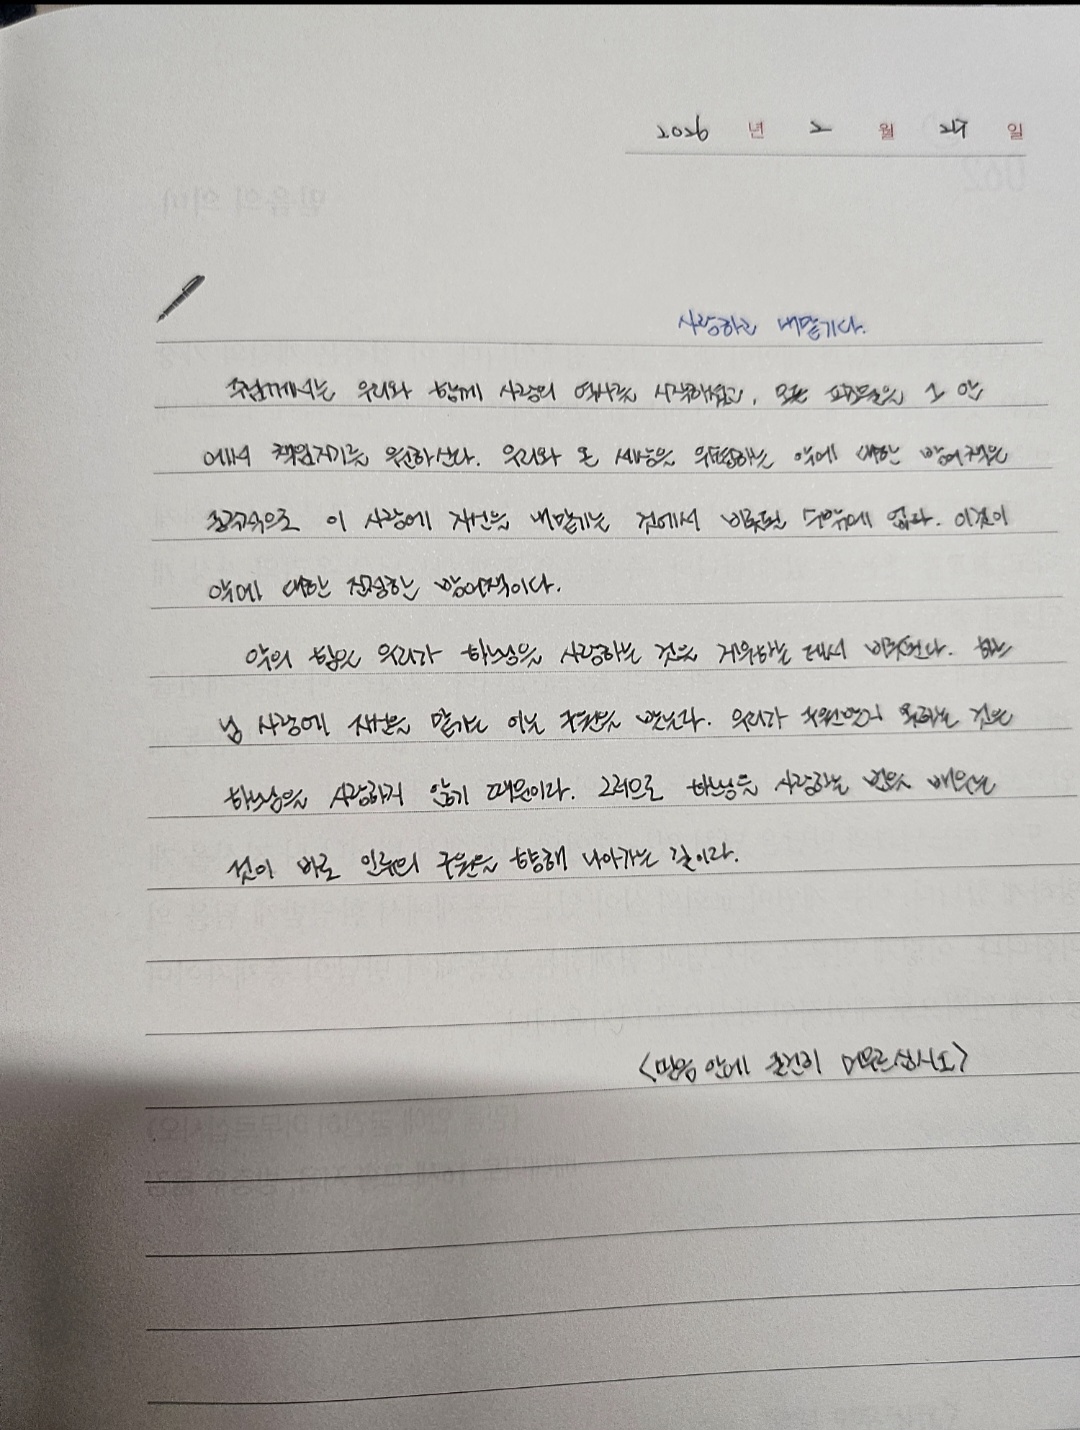 2026 년 2 월 27 일
사랑하고 내맡기다.
주님께서는 우리와 함께 사랑의 역사를 시작하셨고, 모든 피조물을 그 안
에서 책임지기를 원하신다. 우리와 온 세상을 위협하는 악에 대한 방어책은
궁극적으로 이 사랑에 자신을 내맡기는 것에서 비롯될 수밖에 없다. 이것이
악에 대한 진정한 방어책이다.
악의 힘은 우리가 하느님을 사랑하는 것을 거부하는 데서 비롯된다. 하느
님 사랑에 자신을 맡기는 이는 구원을 받는다. 우리가 구원받지 못하는 것은
하느님을 사랑하지 않기 때문이다. 그러므로 하느님을 사랑하는 법을 배우는
것이 바로 인류의 구원을 향해 나아가는 길이다.
<믿음 안에 굳건히 머무르십시오>